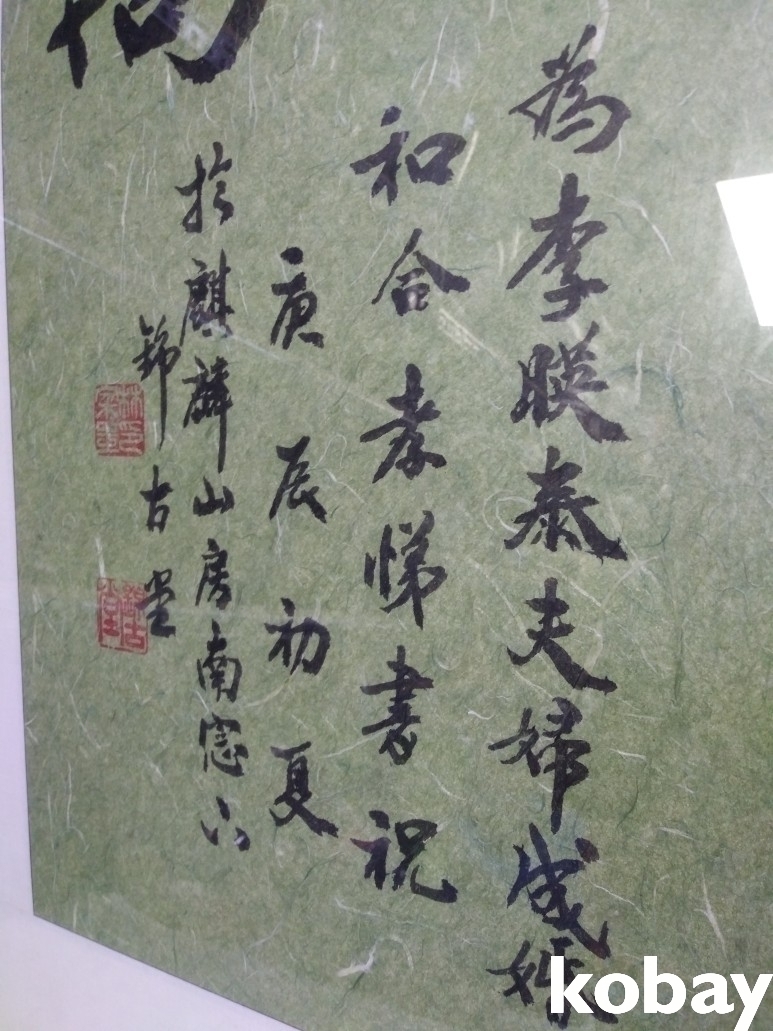 為李映泰夫婦成婚
和合孝悌書祝
庚辰初夏
於麒麟山房南窓下
錦古堂
kobay